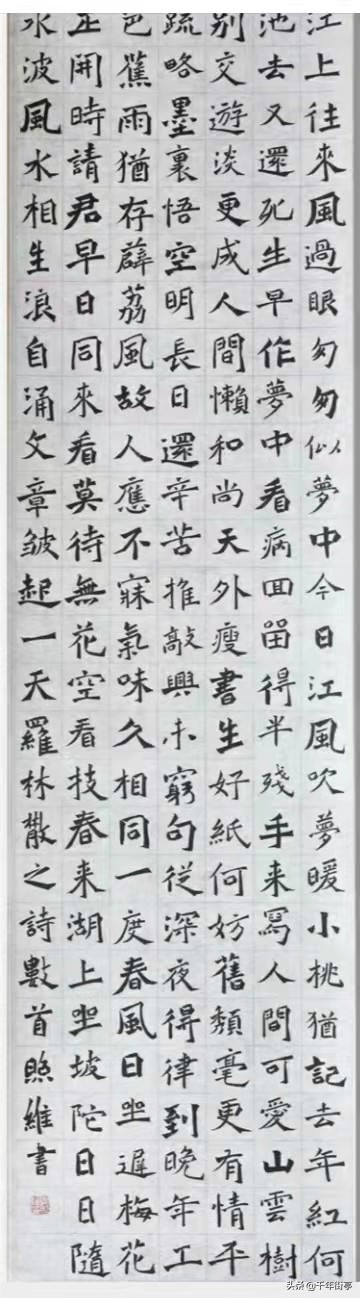 江上往來風過眼匆匆似夢中今日江風吹夢暖小桃猶記去年紅何
池去又還死生早作夢中看病回留得半殘手来寫人間可愛山雲樹
別交遊淡更成人間懶和尚天外瘦書生好紙何妨舊頹毫更有情平
疏略墨裏悟空明長日還辛苦推敲興未窮句從深夜得律到晚年工
芭蕉雨猶存薜荔風故人應不寐氣味久相同一度春風日坐遲梅花
正開時請君早日同來看莫待無花空看技春来湖上坐坡陀日日隨
水波風水相生浪自涌文章皺起一天羅林散之詩數首照維書
头条@千年街亭